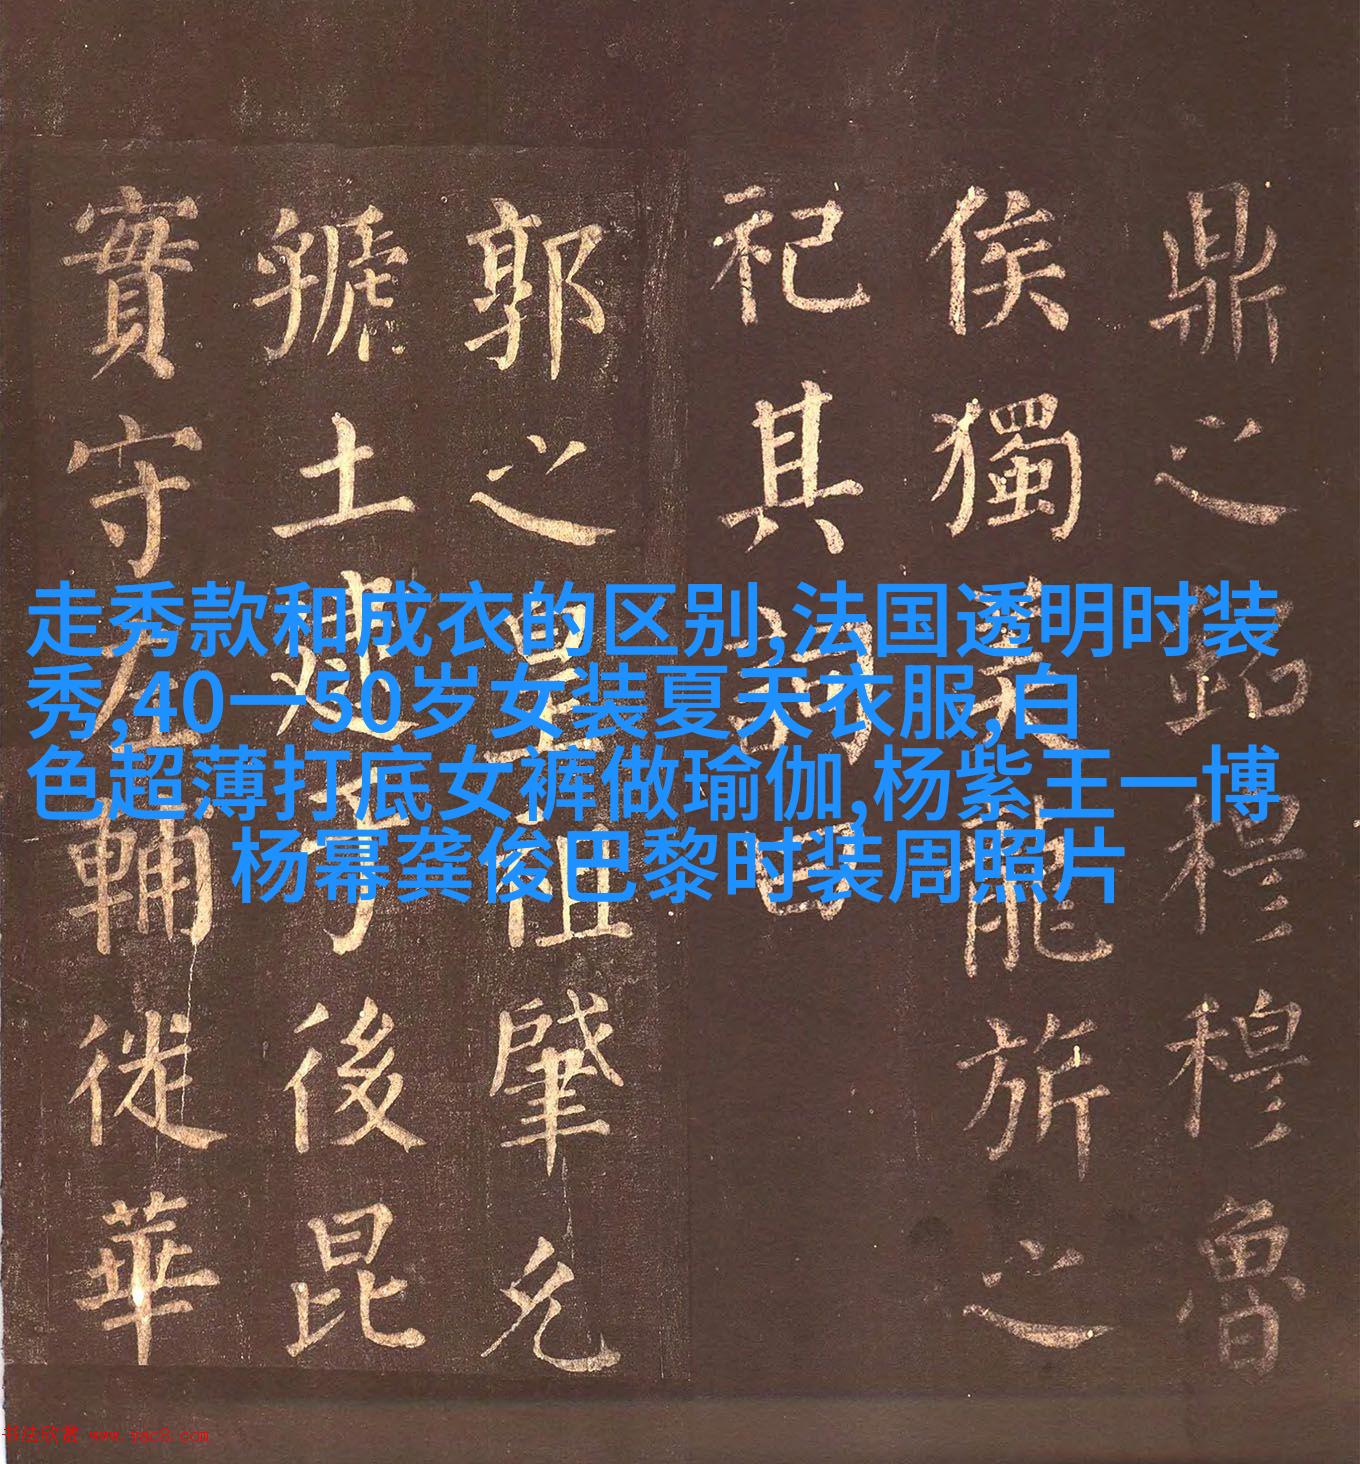 走秀款和成衣的区别,法国透明时装
秀,40一50岁女装夏天衣服,白
色超薄打底女裤做瑜伽,杨紫王一博
杨幂龚俊巴黎时装周照片
鼎之銘穆穆魯
侯獨美龍旂之
祀其詞曰
郭之皇祖肇允
虢土于後昆
實守左輔徙華
书法欣赏 www.yac8.com